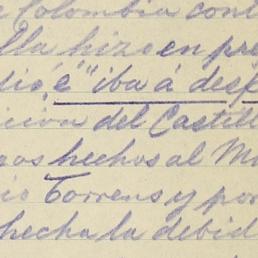 e Colombia cont
lla hizo en pre
dió, é" iba á desp
icion del Castill
nos hechos al Mo
io Torrens y por
hecha la debid